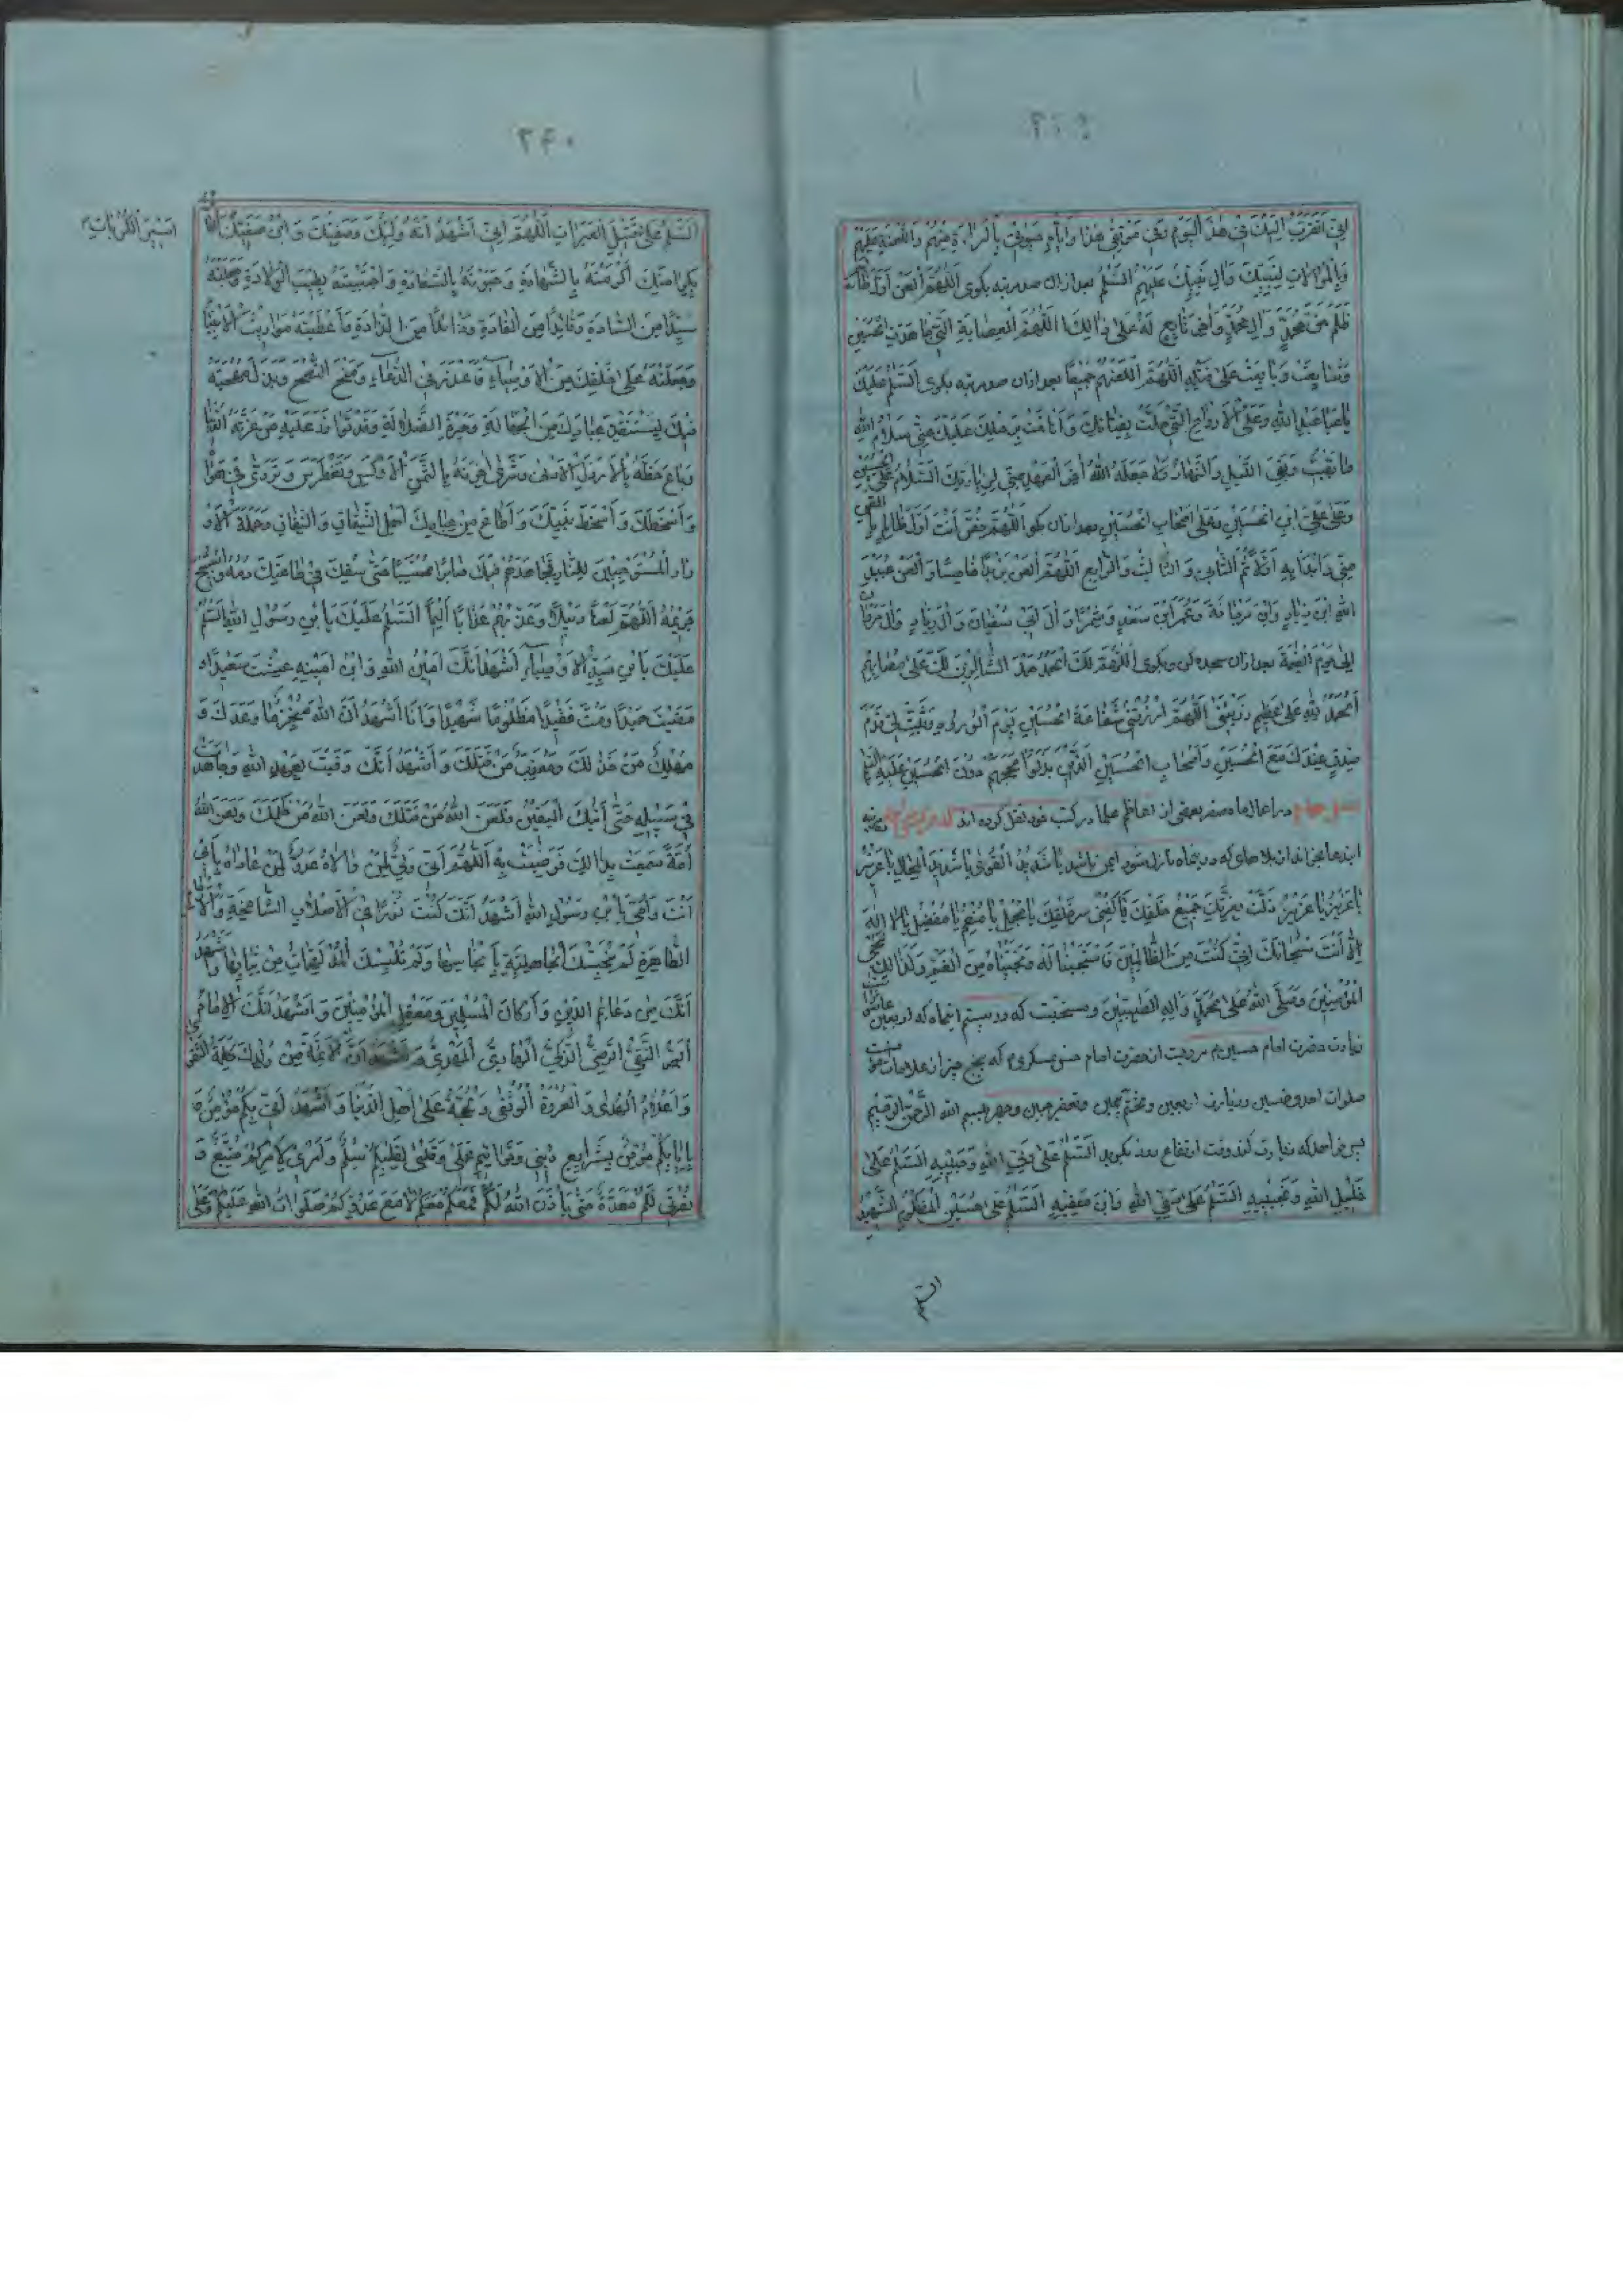 اِنّي اَتَقَرَّبُ اِلَيْكَ في هٰذَا الْيَوْمِ وَفي مَوْقِفي هٰذا وَاَيّامِ حَيوتي بِالْبَراءَةِ مِنْهُمْ وَاللَّعْنَةِ عَلَيْهِمْ
وَبِالْمُوالاتِ لِنَبِيِّكَ وَآلِ نَبِيِّكَ عَلَيْهِمُ السَّلٰمُ بعد ازان صد مرتبه بكوى اَللّٰهُمَّ الْعَنْ اَوَّلَ ظالِمٍ
ظَلَمَ حَقَّ مُحَمَّدٍ وَآلِ مُحَمَّدٍ وَآخِرَ تابِعٍ لَهُ عَلى ذٰالِكَ اَللّٰهُمَّ الْعِصابَةِ الَّتي جاهَدَتِ الْحُسَيْنَ
وَشايَعَتْ وَبايَعَتْ عَلى قَتْلِهِ اَللّٰهُمَّ الْعَنْهُمْ جَميعًا بعد ازان صد مرتبه بكوى اَلسَّلٰمُ عَلَيْكَ
يا اَبا عَبْدِ اللهِ وَعَلَى الْاَرْواحِ الَّتي حَلَّتْ بِفِنائِكَ وَاَناخَتْ بِرَحْلِكَ عَلَيْكَ مِنّي سَلامُ اللهِ
ما بَقيتُ وَبَقِيَ اللَّيْلُ وَالنَّهارُ وَلا جَعَلَهُ اللهُ آخِرَ الْعَهْدِ مِنّي لِزِيارَتِكَ اَلسَّلامُ عَلَى الْحُسَيْنِ
وَعَلى عَلِيِّ ابْنِ الْحُسَيْنِ وَعَلى اَصْحابِ الْحُسَيْنِ بعد ازان بكو اَللّٰهُمَّ خُصَّ اَنْتَ اَوَّلَ ظالِمٍ بِاللَّعْنِ
مِنّي وَابْدَأْ بِهِ اَوَّلًا ثُمَّ الثّاني وَالثّالِثَ وَالرّابِعَ اَللّٰهُمَّ الْعَنْ يَزيدَ خامِسًا وَالْعَنْ عُبَيْدَ
اللهِ ابْنَ زِيادٍ وَابْنَ مَرْجانَةَ وَعُمَرَ ابْنَ سَعْدٍ وَشِمْرًا وَآلَ اَبي سُفْيانَ وَآلَ زِيادٍ وَآلَ مَرْوانَ
اِلى يَوْمِ الْقِيٰمَةِ بعد ازان سجده كن وبكوى اَللّٰهُمَّ لَكَ الْحَمْدُ حَمْدَ الشّاكِرينَ لَكَ عَلى مُصابِهِمْ
اَلْحَمْدُ لِلّٰهِ عَلى عَظيمِ رَزِيَّتي اَللّٰهُمَّ ارْزُقْني شَفاعَةَ الْحُسَيْنِ يَوْمَ الْوُرُودِ وَثَبِّتْ لي قَدَمَ
صِدْقٍ عِنْدَكَ مَعَ الْحُسَيْنِ وَاَصْحابِ الْحُسَيْنِ الَّذينَ بَذَلُوا مُهَجَهُمْ دُونَ الْحُسَيْنِ عَلَيْهِ السَّلامُ
در اعمال ماه صفر بعضى از اعاظم علما در كتب خود نقل كرده اند
اين دعا بخواند از بلاهاى كه در ينماه نازل شود ايمن باشد يا شَديدَ الْقُوٰى يا شَديدَ الْمِحالِ يا عَزيزُ
يا عَزيزُ يا عَزيزُ ذَلَّتْ بِعِزَّتِكَ جَميعُ خَلْقِكَ فَاكْفِني شَرَّ خَلْقِكَ يا مُجْمِلُ يا مُنْعِمُ يا مُفْضِلُ يا لا اِلٰهَ
اِلّا اَنْتَ سُبْحانَكَ اِنّي كُنْتُ مِنَ الظّالِمينَ فَاسْتَجَبْنا لَهُ وَنَجَّيْناهُ مِنَ الْغَمِّ وَكَذٰالِكَ نُنْجي
الْمُؤْمِنينَ وَصَلَّى اللهُ عَلى مُحَمَّدٍ وَآلِهِ الطَّيِّبينَ ومستحبّت كه در بيستم اينماه كه اربعين
زيارت حضرت امام حسين م مرويت از حضرت امام حسن عسكرى م كه پنج چيز از علامات
صلوات احد وخمسين وزيارت اربعين وتختّم بيمين وتعفير جبين وجهر ببسم الله الرَّحْمٰنِ الرَّحيمِ
پس خواهد كه زيارت كند وقت ارتفاع روز بكويد اَلسَّلٰمُ عَلى وَلِيِّ اللهِ وَحَبيبِهِ اَلسَّلٰمُ عَلى
خَليلِ اللهِ وَنَجيبِهِ اَلسَّلٰمُ عَلى صَفِيِّ اللهِ وَابْنِ صَفِيِّهِ اَلسَّلٰمُ عَلى حُسَيْنِ الْمَظْلُومِ الشَّهيدِ
٢٤٠
اَسيرِ الْكُرُباتِ
اَلسَّلٰمُ عَلى قَتيلِ الْعَبَراتِ اَللّٰهُمَّ اِنّي اَشْهَدُ اَنَّهُ وَلِيُّكَ وَصَفِيُّكَ وَابْنُ صَفِيِّكَ الْفائِزُ
بِكَرامَتِكَ اَكْرَمْتَهُ بِالشَّهادَةِ وَحَبَوْتَهُ بِالسَّعادَةِ وَاجْتَبَيْتَهُ بِطيبِ الْوِلادَةِ وَجَعَلْتَهُ
سَيِّدًا مِنَ السّادَةِ وَقائِدًا مِنَ الْقادَةِ وَذائِدًا مِنَ الذّادَةِ وَاَعْطَيْتَهُ مَواريثَ الْاَنْبِياءِ
وَجَعَلْتَهُ حُجَّةً عَلى خَلْقِكَ مِنَ الْاَوْصِياءِ فَاَعْذَرَ فِي الدُّعاءِ وَمَنَحَ النُّصْحَ وَبَذَلَ مُهْجَتَهُ
فيكَ لِيَسْتَنْقِذَ عِبادَكَ مِنَ الْجَهالَةِ وَحَيْرَةِ الضَّلالَةِ وَقَدْ تَوازَرَ عَلَيْهِ مَنْ غَرَّتْهُ الدُّنْيا
وَباعَ حَظَّهُ بِالْاَرْذَلِ الْاَدْنى وَشَرى آخِرَتَهُ بِالثَّمَنِ الْاَوْكَسِ وَتَغَطْرَسَ وَتَرَدّى في هَواهُ
وَاَسْخَطَكَ وَاَسْخَطَ نَبِيَّكَ وَاَطاعَ مِنْ عِبادِكَ اَهْلَ الشِّقاقِ وَالنِّفاقِ وَحَمَلَةَ الْاَوْ
زارِ الْمُسْتَوْجِبينَ لِلنّارِ فَجاهَدَهُمْ فيكَ صابِرًا مُحْتَسِبًا حَتّى سُفِكَ في طاعَتِكَ دَمُهُ وَاسْتُبيحَ
حَريمُهُ اَللّٰهُمَّ الْعَنْهُمْ لَعْنًا وَبيلًا وَعَذِّبْهُمْ عَذابًا اَليمًا اَلسَّلٰمُ عَلَيْكَ يَابْنَ رَسُولِ اللهِ اَلسَّلٰمُ
عَلَيْكَ يَابْنَ سَيِّدِ الْاَوْصِياءِ اَشْهَدُ اَنَّكَ اَمينُ اللهِ وَابْنُ اَمينِهِ عِشْتَ سَعيدًا وَ
مَضَيْتَ حَميدًا وَمُتَّ فَقيدًا مَظْلُومًا شَهيدًا وَاَنَا اَشْهَدُ اَنَّ اللهَ مُنْجِزٌ ما وَعَدَكَ وَ
مُهْلِكٌ مَنْ خَذَلَكَ وَمُعَذِّبٌ مَنْ قَتَلَكَ وَاَشْهَدُ اَنَّكَ وَفَيْتَ بِعَهْدِ اللهِ وَجاهَدْتَ
في سَبيلِهِ حَتّى اَتيكَ الْيَقينُ فَلَعَنَ اللهُ مَنْ قَتَلَكَ وَلَعَنَ اللهُ مَنْ ظَلَمَكَ وَلَعَنَ اللهُ
اُمَّةً سَمِعَتْ بِذالِكَ فَرَضِيَتْ بِهِ اَللّٰهُمَّ اِنّي وَلِيٌّ لِمَنْ والاهُ عَدُوٌّ لِمَنْ عاداهُ بِاَبي
اَنْتَ وَاُمّي يَابْنَ رَسُولِ اللهِ اَشْهَدُ اَنَّكَ كُنْتَ نُورًا فِي الْاَصْلابِ الشّامِخَةِ وَالْاَرْحامِ
الطّاهِرَةِ لَمْ تُنَجِّسْكَ الْجاهِلِيَّةُ بِاَنْجاسِها وَلَمْ تُلْبِسْكَ الْمُدْلَهِمّاتُ مِنْ ثِيابِها وَاَشْهَدُ
اَنَّكَ مِنْ دَعائِمِ الدّينِ وَاَرْكانِ الْمُسْلِمينَ وَمَعْقِلِ الْمُؤْمِنينَ وَاَشْهَدُ اَنَّكَ الْاِمامُ
الْبَرُّ التَّقِيُّ الرَّضِيُّ الزَّكِيُّ الْهادِي الْمَهْدِيُّ وَاَشْهَدُ اَنَّ الْاَئِمَّةَ مِنْ وُلْدِكَ كَلِمَةُ التَّقْوى
وَاَعْلامُ الْهُدى وَالْعُرْوَةُ الْوُثْقى وَحُجَّةٌ عَلى اَهْلِ الدُّنْيا وَاَشْهَدُ اَنّي بِكُمْ مُؤْمِنٌ وَ
بِاِيابِكُمْ مُوقِنٌ بِشَرايِعِ ديني وَخَواتيمِ عَمَلي وَقَلْبي لِقَلْبِكُمْ سِلْمٌ وَاَمْري لِاَمْرِكُمْ مُتَّبِعٌ وَ
نُصْرَتي لَكُمْ مُعَدَّةٌ حَتّى يَأْذَنَ اللهُ لَكُمْ فَمَعَكُمْ مَعَكُمْ لا مَعَ عَدُوِّكُمْ صَلَواتُ اللهِ عَلَيْكُمْ وَعَلى